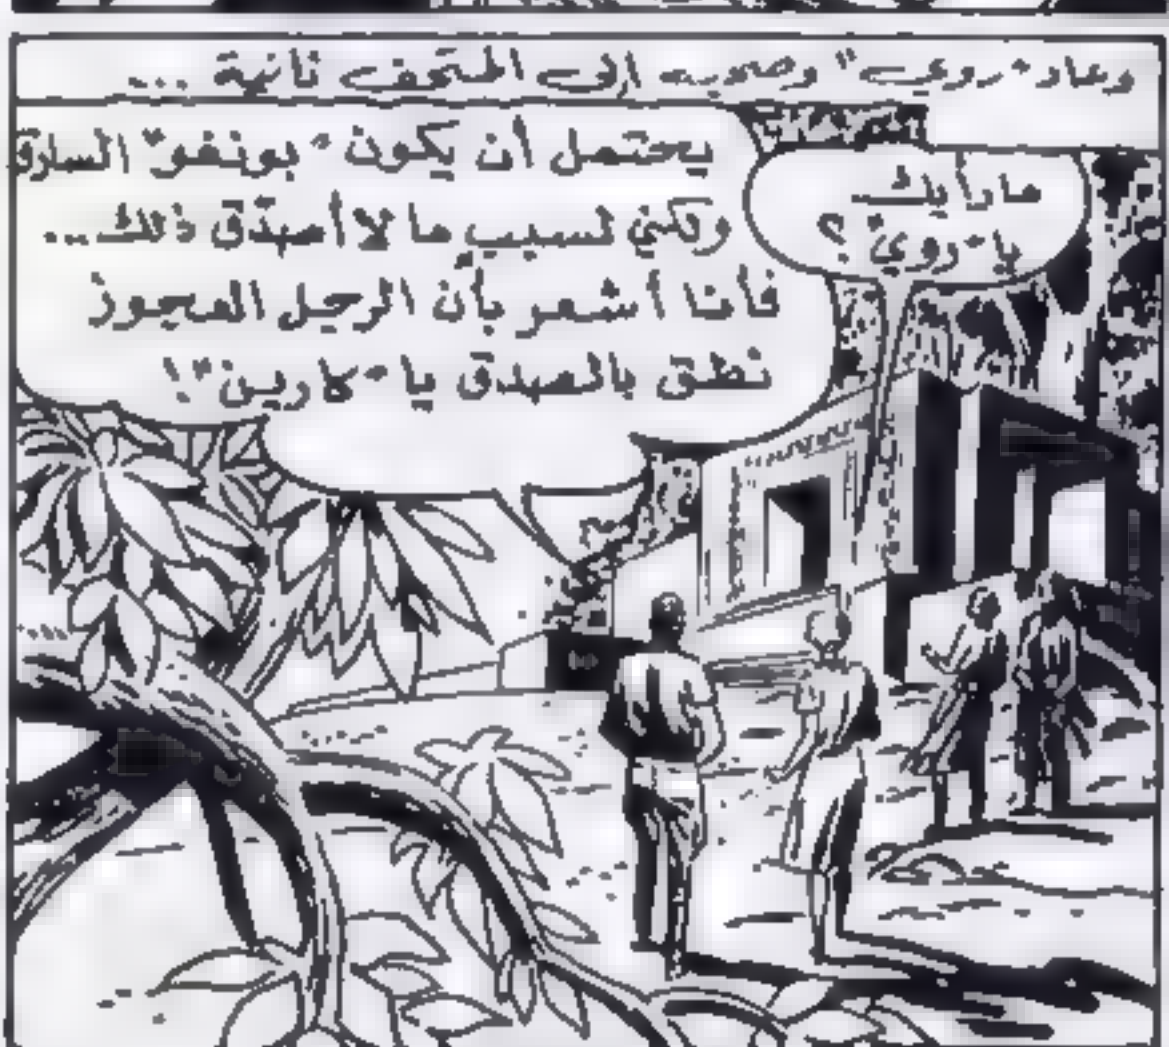 وعاد "روي" وصحبه إلى المتحف ثانية ...
ما رأيك
يا "روي" ؟
يحتمل أن يكون "بونفو" السارق
ولكني لسبب ما لا أصدّق ذلك...
فأنا أشعر بأن الرجل العجوز
نطق بالصدق يا "كارين" !